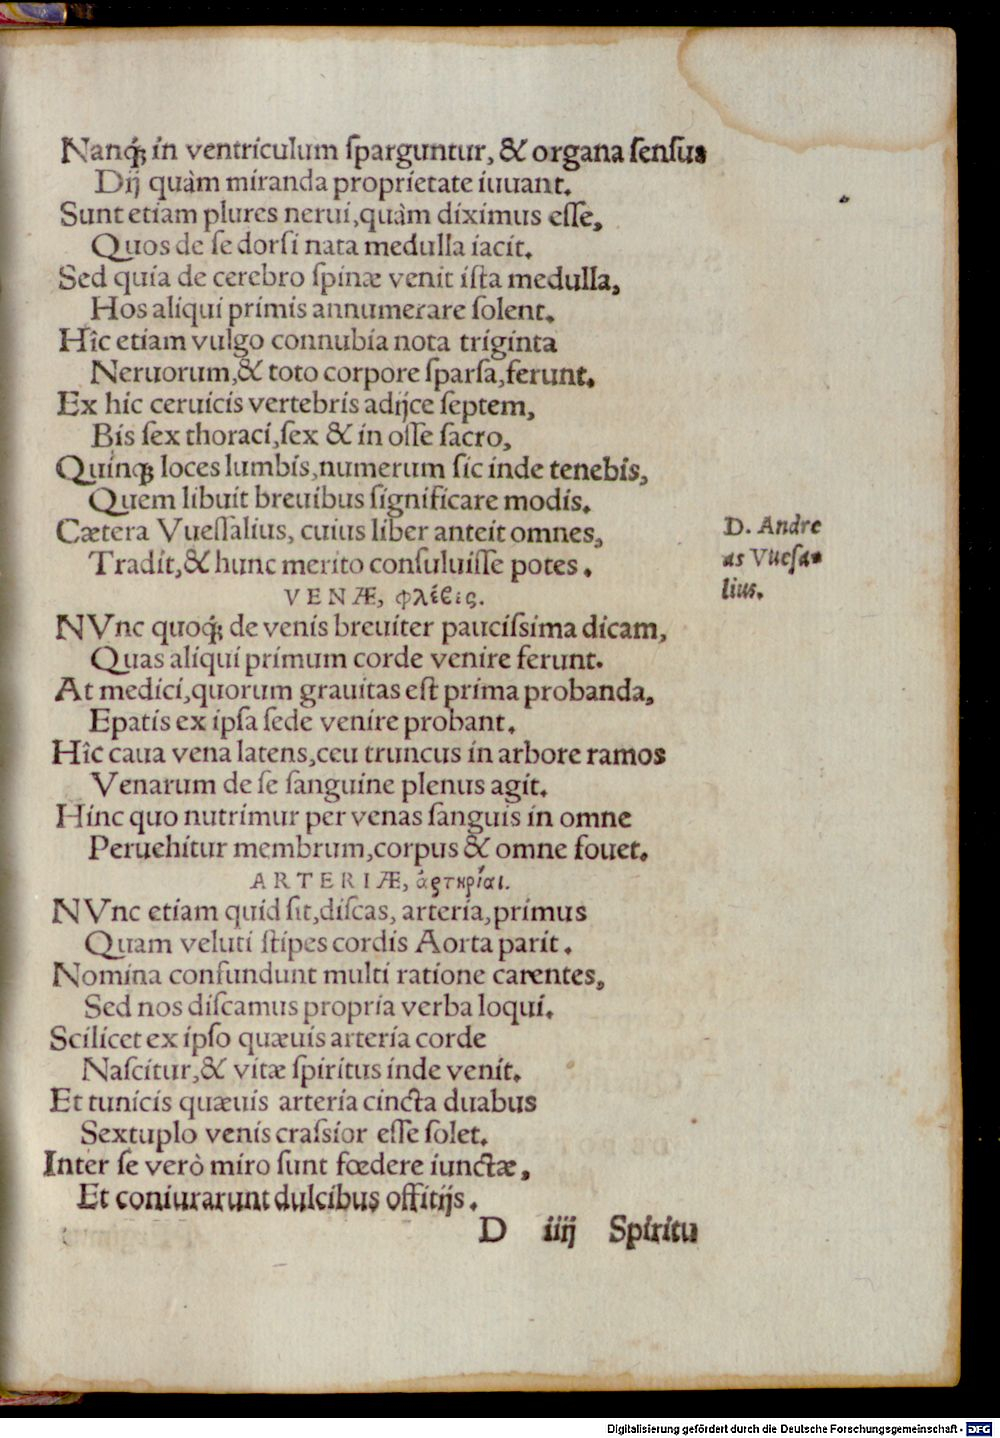 Nanq́ꝫ in ventriculum ſparguntur, & organa ſenſus
Dij quàm miranda proprietate iuuant.
Sunt etiam plures nerui, quàm diximus eſſe,
Quos de ſe dorſi nata medulla iacit.
Sed quia de cerebro ſpinæ venit iſta medulla,
Hos aliqui primis annumerare ſolent.
Hîc etiam vulgo connubia nota triginta
Neruorum, & toto corpore ſparſa, ferunt.
Ex hic ceruicis vertebris adijce ſeptem,
Bis ſex thoraci, ſex & in oſſe ſacro,
Quinqꝫ loces lumbis, numerum ſic inde tenebis,
Quem libuit breuibus ſignificare modis.
Cætera Vueſſalius, cuius liber anteit omnes,
Tradit, & hunc merito conſuluiſſe potes.
D. Andre
as Vueſa-
lius.
VENÆ, φλέϐες.
NVnc quoq́ꝫ de venis breuiter pauciſsima dicam,
Quas aliqui primum corde venire ferunt.
At medici, quorum grauitas eſt prima probanda,
Epatis ex ipſa ſede venire probant.
Hîc caua vena latens, ceu truncus in arbore ramos
Venarum de ſe ſanguine plenus agit.
Hinc quo nutrimur per venas ſanguis in omne
Peruehitur membrum, corpus & omne fouet.
ARTERIÆ, ἀρτηρίαι.
NVnc etiam quid ſit, diſcas, arteria, primus
Quam veluti ſtipes cordis Aorta parit.
Nomina confundunt multi ratione carentes,
Sed nos diſcamus propria verba loqui.
Scilicet ex ipſo quæuis arteria corde
Naſcitur, & vitæ ſpiritus inde venit.
Et tunicis quæuis arteria cincta duabus
Sextuplo venis craſsior eſſe ſolet.
Inter ſe verò miro ſunt fœdere iunctæ,
Et coniurarunt dulcibus offitijs.
D iiij Spiritu
Digitalisierung gefördert durch die Deutsche Forschungsgemeinschaft - DFG